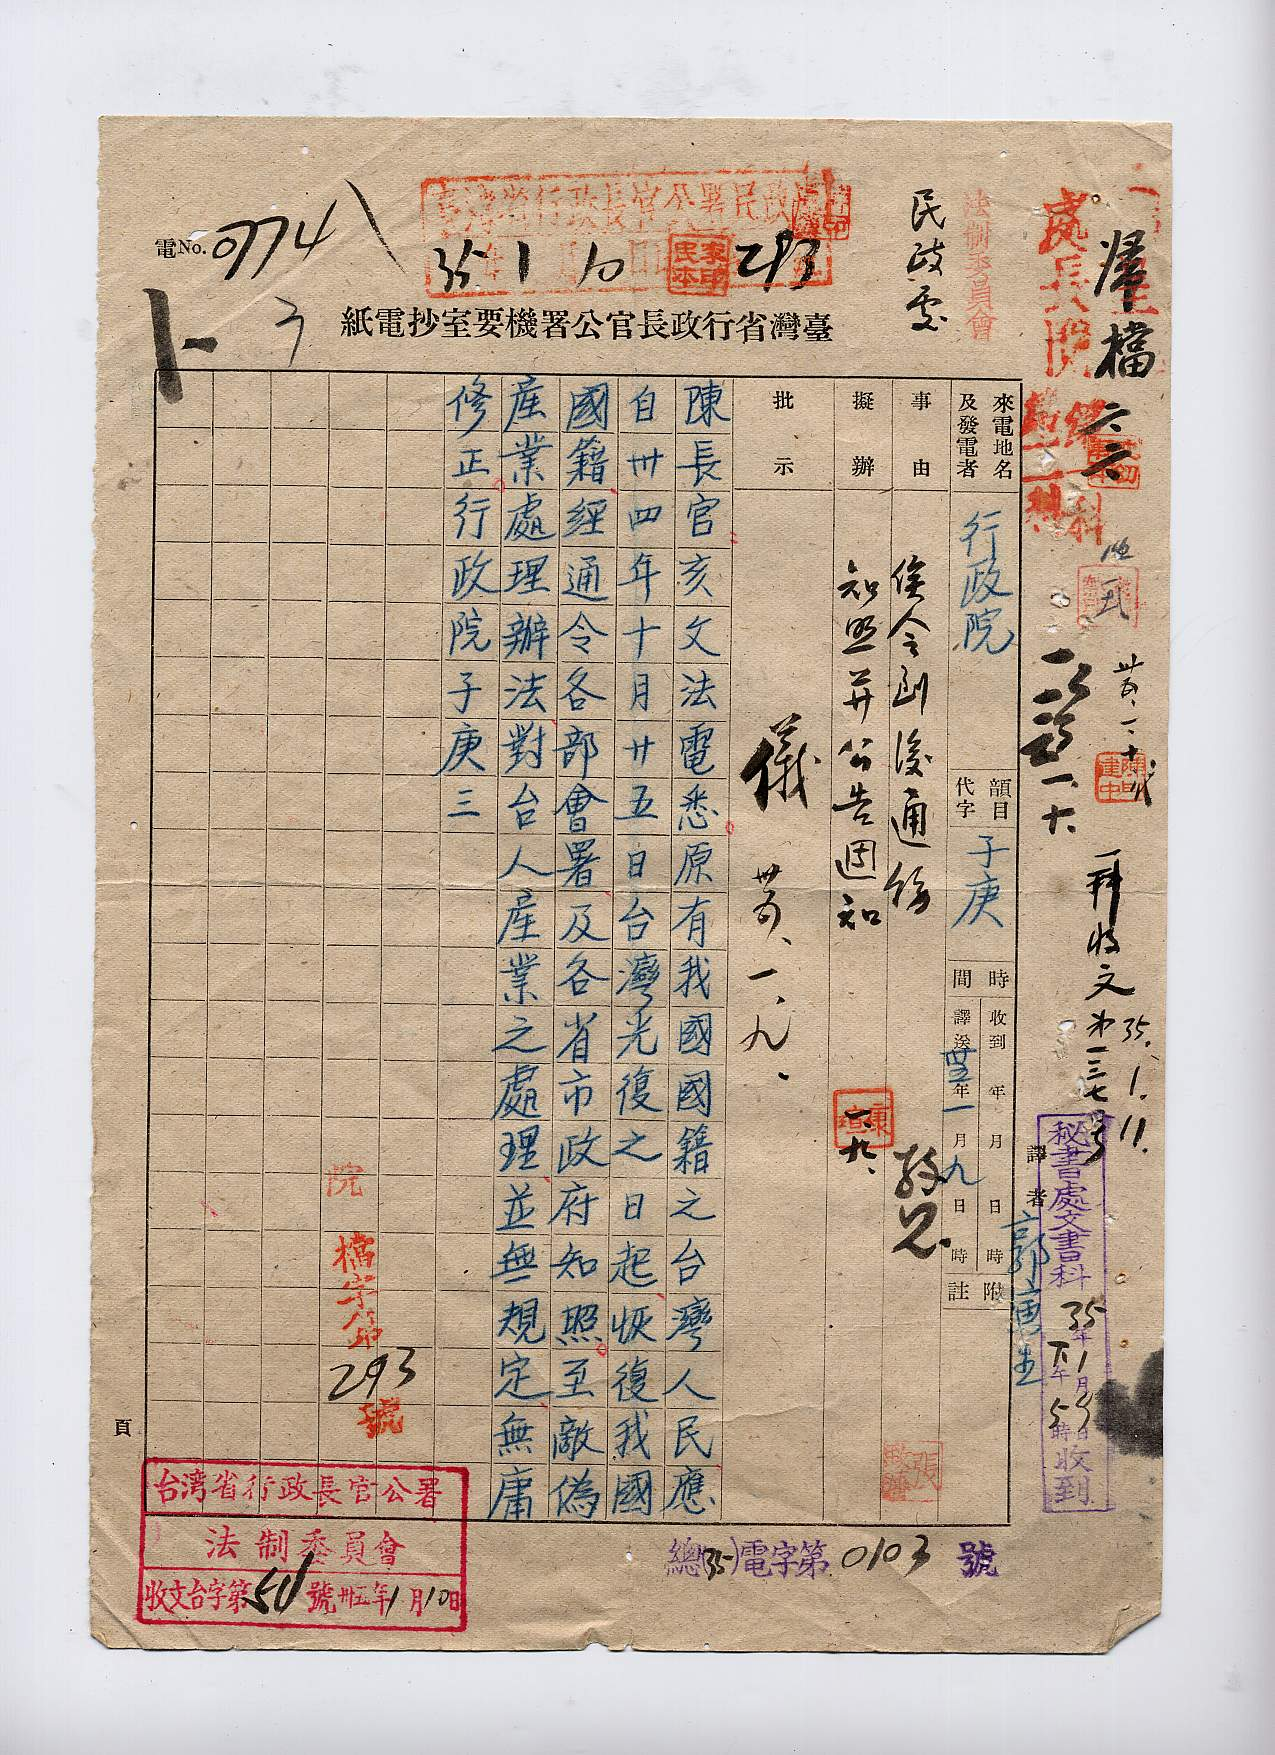 電No. 0774
臺灣省行政長官公署民政處
35 1 10 293
臺灣省行政長官公署機要室抄電紙
民政處
法制委員會
歸檔
六六
來電地名及發電者
行政院
韻目代字
子庚
時間
收到 年 月 日 時
譯送 卅五年一月九日時
附註
譯者
事由
擬辦
俟令到後通飭
知照并公告週知
一、九、
批示
儀
卅五、一、九、
陳長官亥文法電悉原有我國國籍之台灣人民應
自卅四年十月廿五日台灣光復之日起恢復我國
國籍經通令各部會署及各省市政府知照至敵偽
產業處理辦法對台人產業之處理並無規定無庸
修正行政院子庚三
一科收文第一三七號
35.1.11.
秘書處文書科
35年1月9日
下午5時收到
院
檔字第
293
號
頁
台湾省行政長官公署
法制委員會
收文台字第51號卅五年1月10日
總(35)電字第0103號